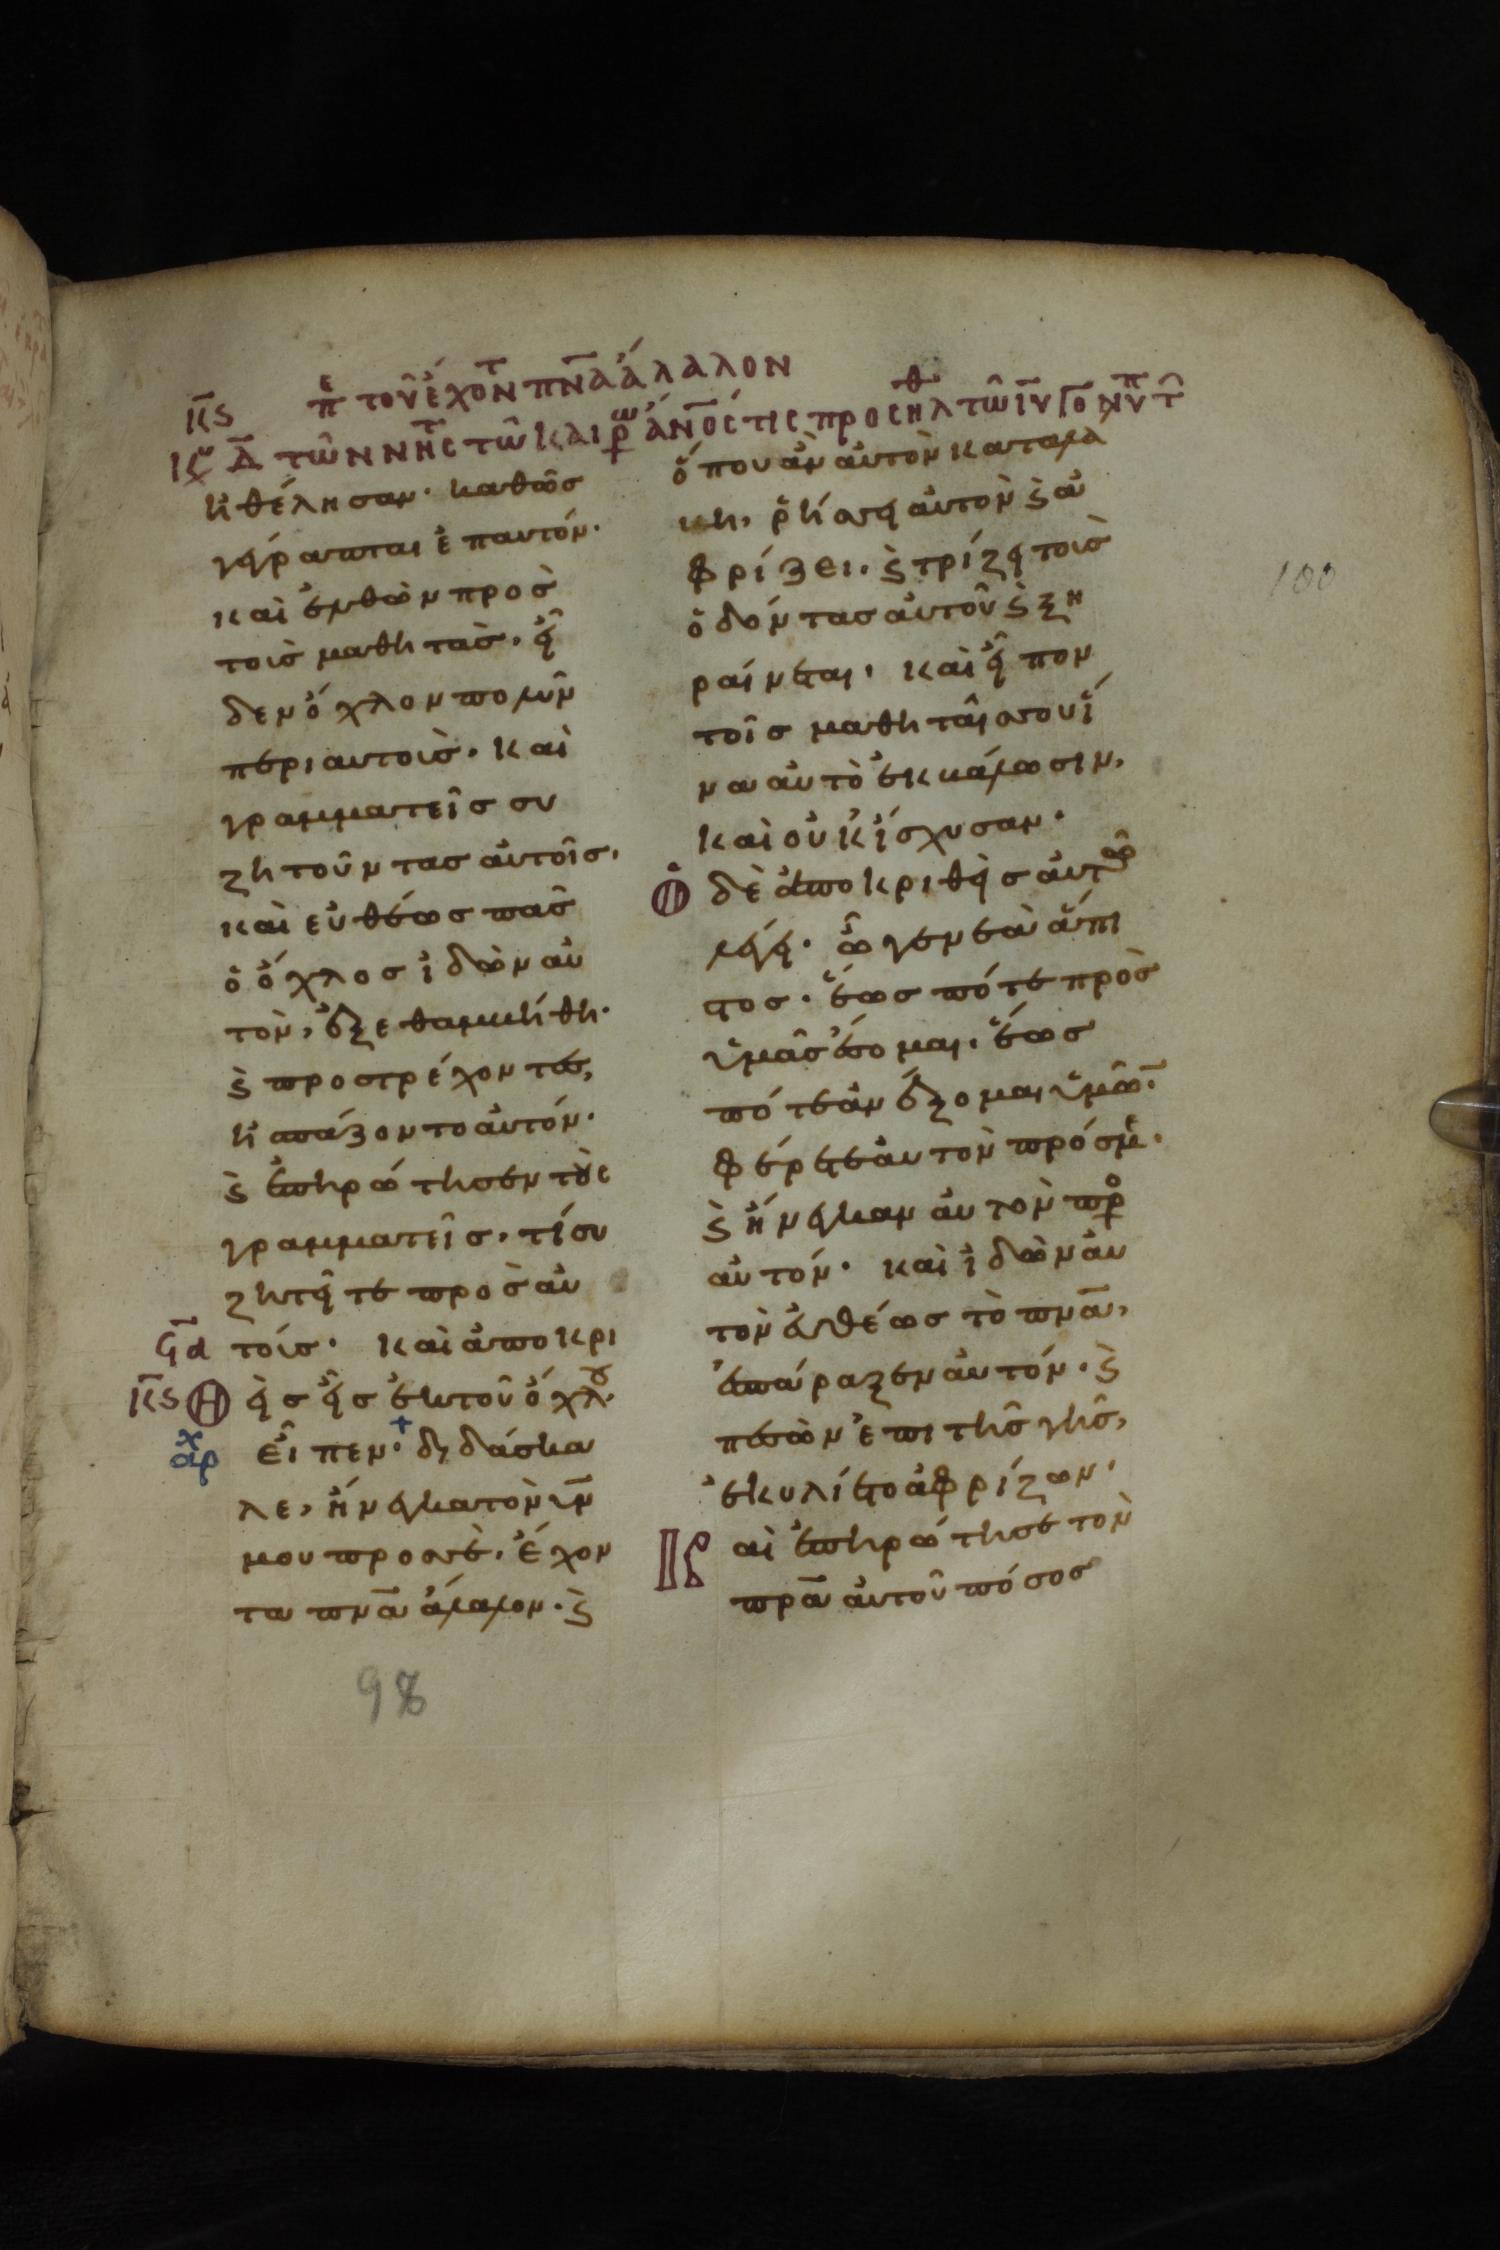 κς πε του εχοντ πνα αλαλον
κυ δ των νητς τω καιρω ανος τις προσηλθ τω ιυ γονυπτ
ἠθέλησαν· καθὼσ
γέγραπται ἐπαυτόν·
καὶ ἐλθὼν προσ
τοὺσ μαθητὰσ, εἶ
δεν ὄχλον πολὺν
περι αυτοὺσ. καὶ
γραμματεῖσ συ
ζητοῦντασ αὐτοῖσ,
καὶ εὐθέωσ πᾶσ
ὁ ὄχλοσ ἰδὼν αὐ
τὸν, ἐξεθαμβήθη·
ϗ προστρέχοντεσ,
ἠσπάζοντο αὐτόν·
ϗ ἐπηρώτησεν τοὺσ
γραμματεῖσ, τί συ
ζητεῖτε προσ αὐ
τούσ· καὶ ἀποκρι
κς θεὶσ εἷσ ἐκ τοῦ ὄχλου·
αρχ εἶπεν· διδάσκα
λε, ἤνεγκα τὸν υν
μου προσ σὲ, ἔχον
τα πνα ἄλαλον· ϗ
ὅπου ἂν αὐτὸν καταλά
βη, ῥήσσει αὐτὸν ϗ ἀ
φρίζει, ϗ τρίζει τοὺσ
ὀδόντασ αὐτοῦ ϗ ξη
ραίνεται, καὶ εἶπον
τοῖσ μαθηταῖσ σου ἵ
να αὐτὸ ἐκβάλωσιν,
καὶ οὐκ ἴσχυσαν·
Ὁ δὲ ἀποκριθεὶσ αὐτῶ
λέγει· ὦ γενεὰ ἄπι
στοσ· ἕωσ πότε πρὸσ
ὑμᾶσ ἔσομαι, ἕωσ
πότε ἀνέξομαι ὑμῶν·
φέρετε αὐτὸν πρόσ με·
ϗ ἤνεγκαν αὐτὸν προ
αὐτόν· καὶ ἰδὼν αὐ
τὸν εὐθέωσ τὸ πνα,
ἐσπάραξεν αὐτόν· ϗ
πεσὼν ἐπι τῆσ γῆσ,
ἐκυλίετο ἀφρίζων·
Καὶ ἐπηρώτησε τον
πρα αὐτοῦ πόσοσ
100
98